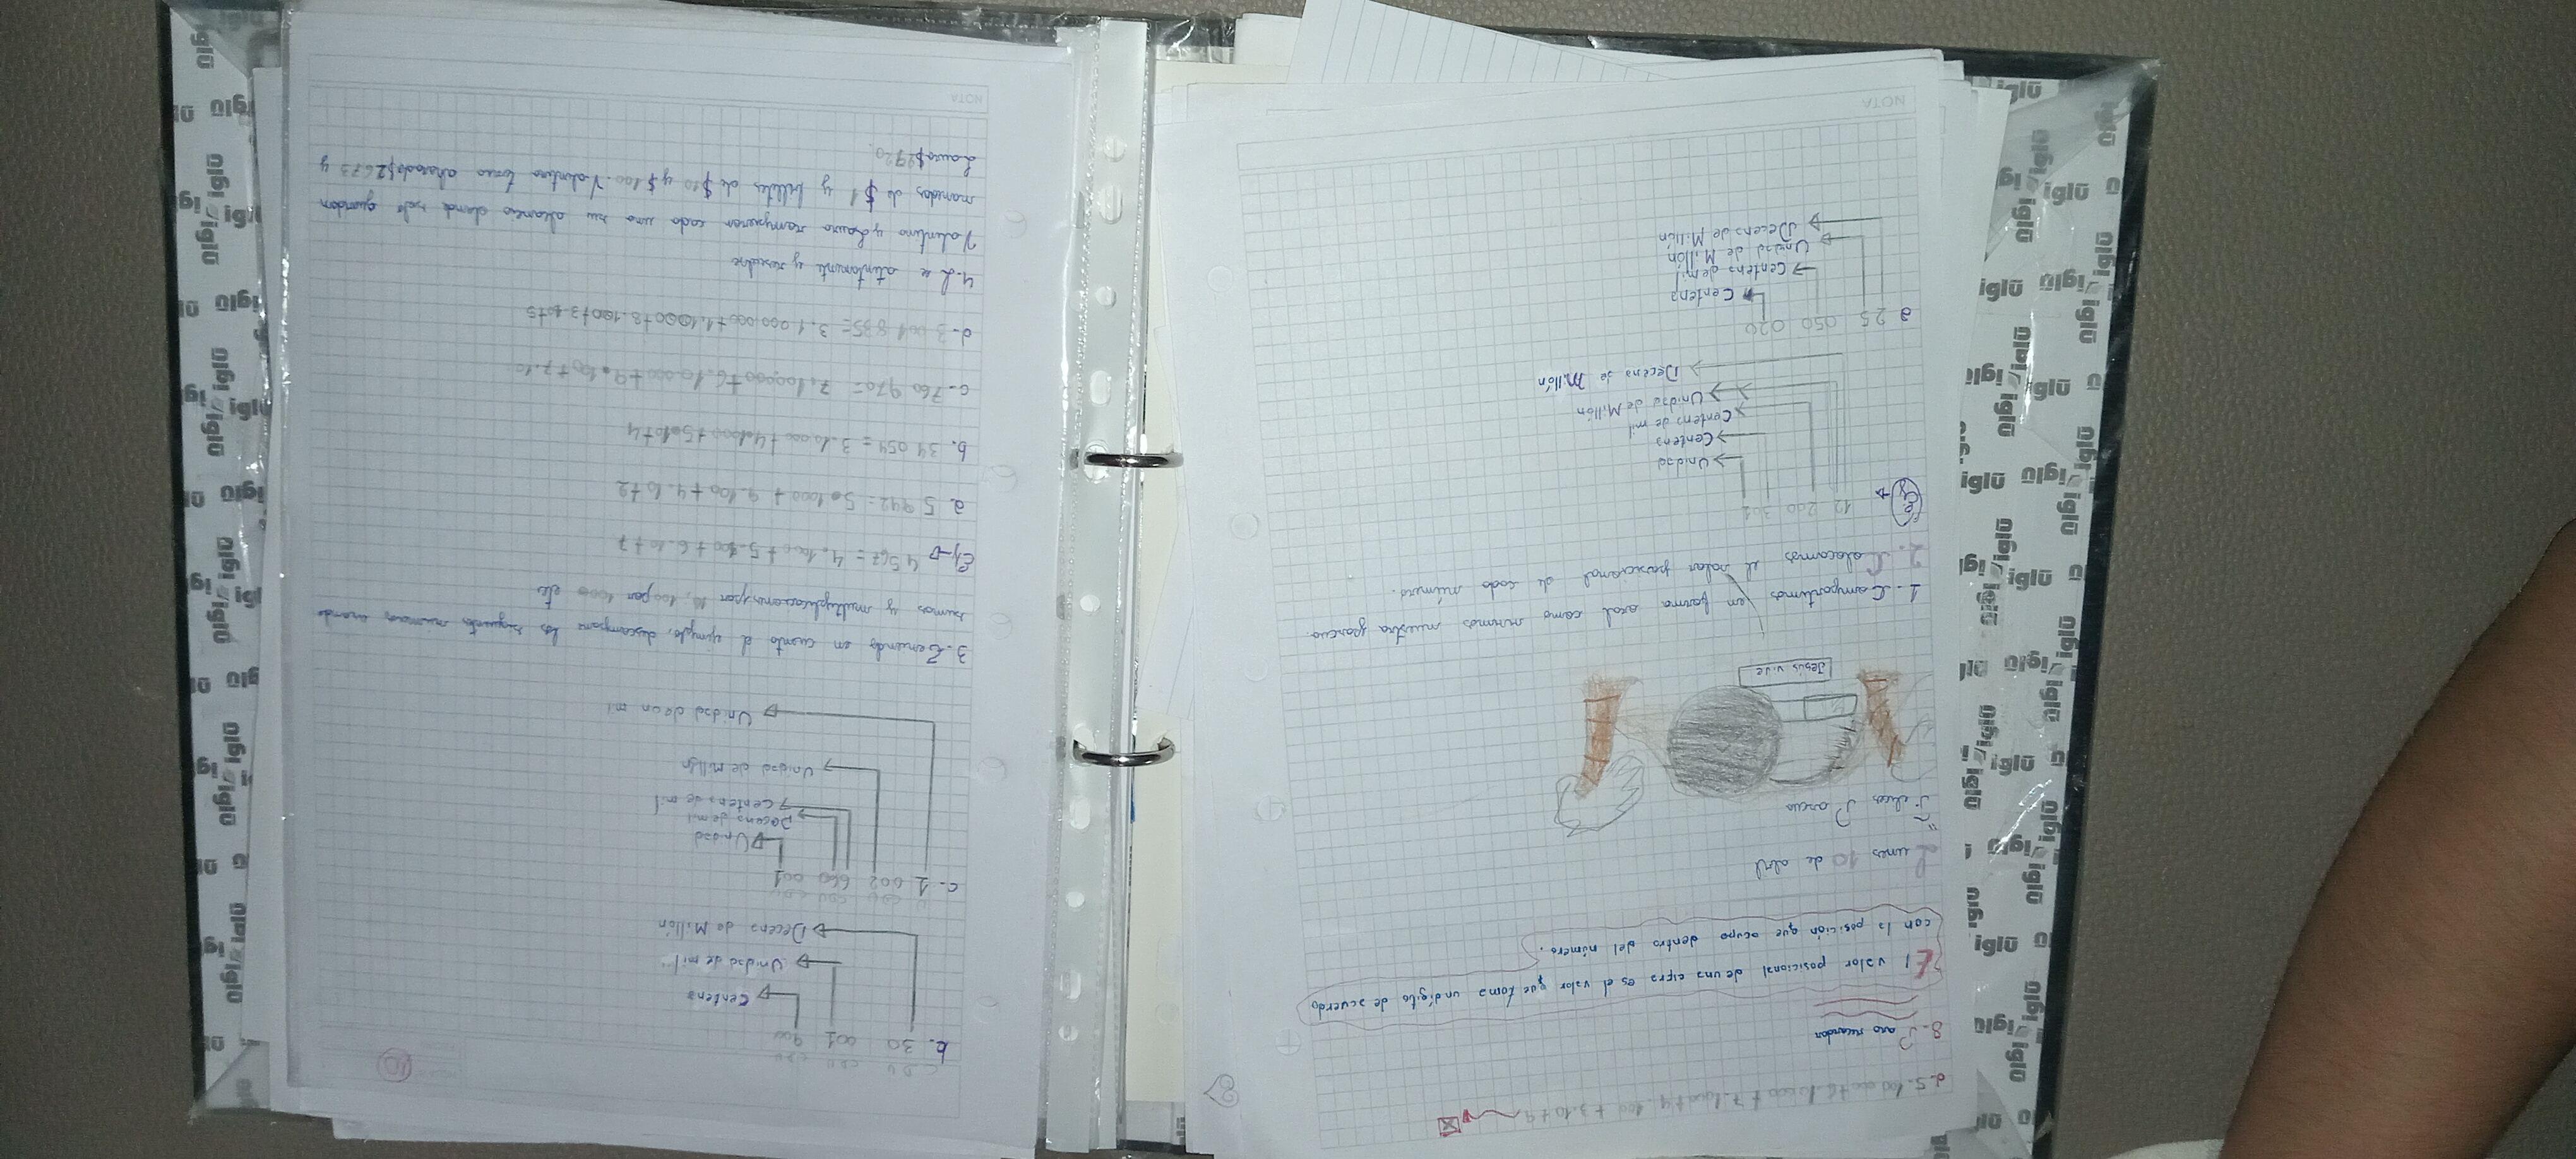 d-5.100 000+6.10 000+7.1000+4.100+3.10+9
8- Para recordar
El valor posicional de una cifra es el valor que toma un dígito de acuerdo
con la posición que ocupa dentro del número.
Lunes 10 de abril
Felices Pascua
Jesús vive
1- Compartimos en forma oral como vivimos nuestra pascua.
2- Colocamos el valor posicional de cada número.
Ej→
12 200 301
Unidad
Centena
Centena de mil
Unidad de Millón
Decena de Millón
a 25 050 020
Centena
Centena de mil
Unidad de Millón
Decena de Millón
NOTA
10
b. 30 001 900
Centena
Unidad de mil
Decena de Millón
CDU CDU CDU
c- 1 602 660 001
Unidad
Decena de mil
Centena de mil
Unidad de Millón
Unidad de un mil
3- Teniendo en cuenta el ejemplo, descompone los siguientes números usando
sumas y multiplicaciones por 10, 100 por 1000 etc
Ej→ 4 567= 4.1000+5.100+6.10+7
a. 5 942= 5.1000+9.100+4.10+2
b. 34 054= 3.10 000+4.1000+5.10+4
c- 760 970= 7.100,000+6.10 000+9.100+7.10
d- 3 001 835= 3.1 000 000+1.1000+8.100+3.10+5
4- Lee atentamente y resuelve
Valentino y Laura rompieron cada uno su alcancía donde solo guardan
monedas de $1 y billetes de $10 y $100. Valentino tenia ahorado $2673 y
Laura $2920.
NOTA
iglü